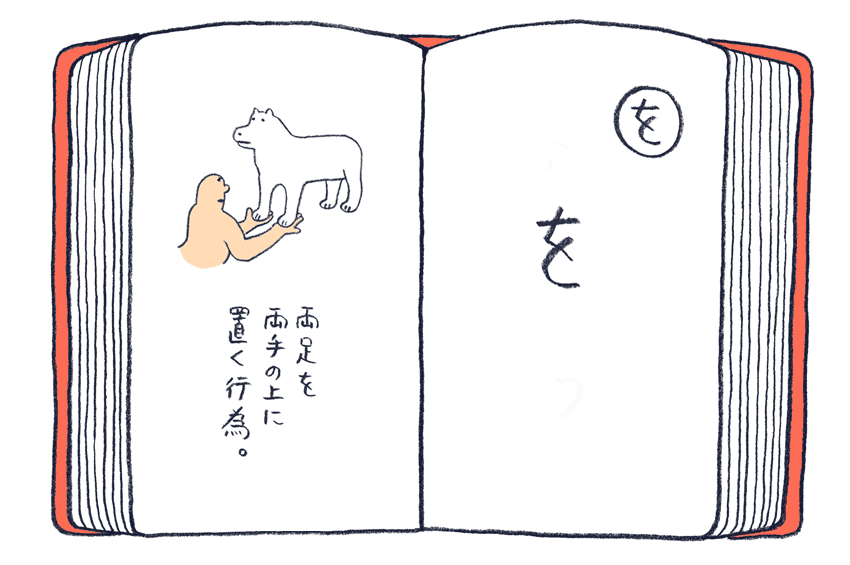 を
を
両足を
両手の上に
置く行為。